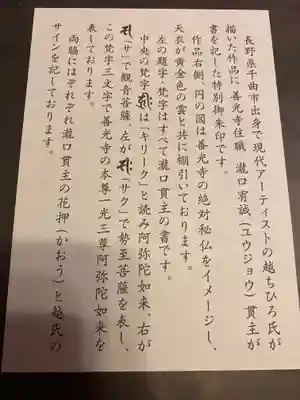 長野県千曲市出身で現代アーティストの越ちひろ氏が
描いた作品に、善光寺住職　瀧口宥誠（ユウジョウ）貫主が
書を記した特別御朱印です。
作品右側、円の図は善光寺の絶対秘仏をイメージし、
天衣が黄金色の雲と共に棚引いております。
左の題字・梵字はすべて瀧口貫主の書です。
中央の梵字𑖮𑖿𑖨𑖱𑖾は「キリーク」と読み阿弥陀如来、右が
𑖭「サ」で観音菩薩。左が𑖭𑖾（サク）で勢至菩薩を表し、
この梵字三文字で善光寺の本尊一光三尊阿弥陀如来を
表しております。
両脇にはそれぞれ瀧口貫主の花押（かおう）と越氏の
サインを記しております。